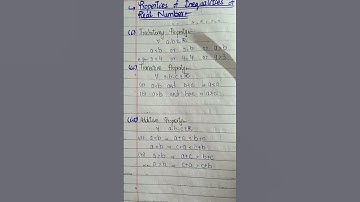 Properties of Inequalities of
Real Numbers
(i) Trichotomy Property:-
∀ a,b ∈ R
a<b or a=b or a>b
(ii) Transitive Property:-
∀ a,b,c ∈ R
(i) a<b and b<c ⇒ a<c
(ii) a>b and b>c ⇒ a>c
(iii) Additive Property:-
∀ a,b,c ∈ R
(i) a<b ⇒ a+c < b+c
a<b ⇒ c+a < c+b
(ii) a>b ⇒ a+c > b+c
a>b ⇒ c+a > c+b